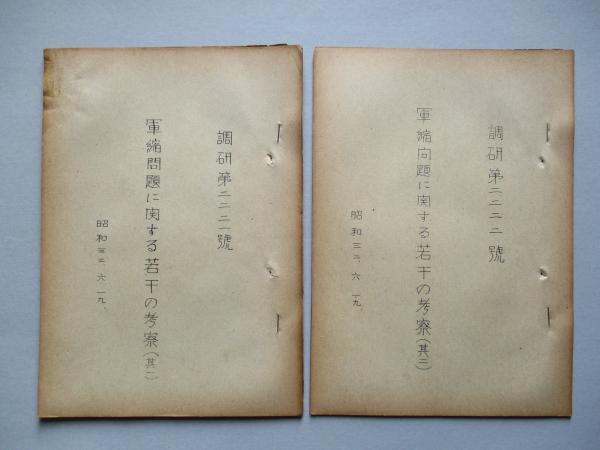 調研第二二二一號
軍縮問題に関する若干の考察(其一)
昭和三二、六、一九、
調研第二二二二號
軍縮問題に関する若干の考察(其二)
昭和三二、六 一九、